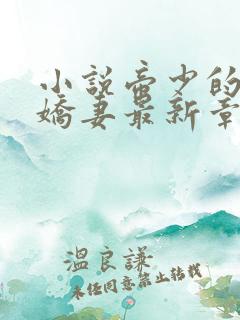 小说帝少的
娇妻最新章
温良谦
未经同意禁止转载